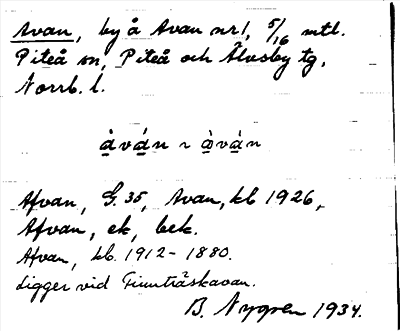 Avan, by å Avan nr 1, 5/16 mtl.
Piteå sn, Piteå och Älvsby tg,
Norrb. l.
àván ~ àván
Afvan, G. 35, Avan, kb 1926,
Afvan, ek, bek.
Afvan, kb. 1912-1880.
Ligger vid Finnträskavan.
B. Nygren 1934.